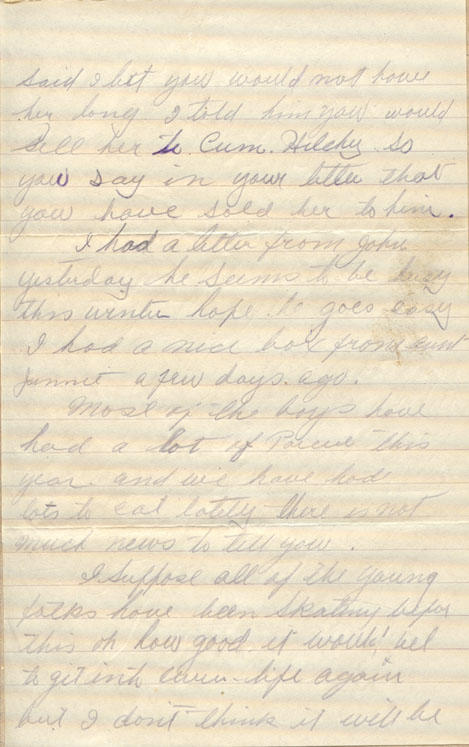 said I bet you would not have
her long I told him you would
sell her to Cum. Hilchy so
you say in your letter that
you have sold her to him.
I had a letter from John
yesterday he seems to be busy
this winter hope he goes easy
I had a nice box from aunt
Jannet a few days ago.
Most of the boys have
had a lot of this
year. and we have had
lots to eat lately there is not
much news to tell you.
I suppose all of the young
folks have been skating before
this oh how good it would be
to get into life again
but I don't think it will be